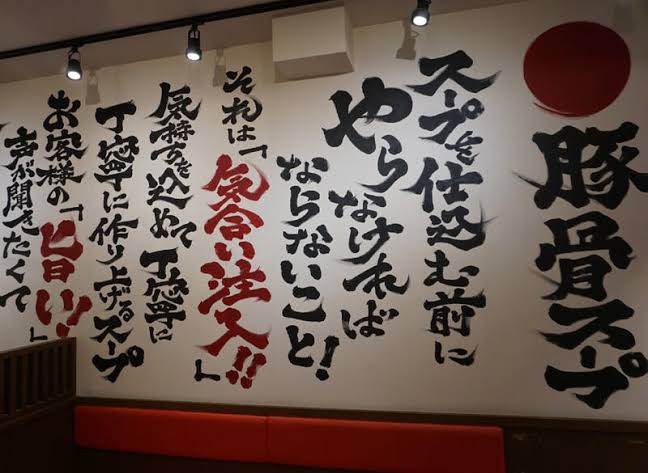 豚骨スープ
スープを仕込む前に
やらなければ
ならないこと!
それは「気合い注入!!」
気持ちを込めて丁寧に
丁寧に作り上げるスープ
お客様の「旨い!!」
声が聞きたくて